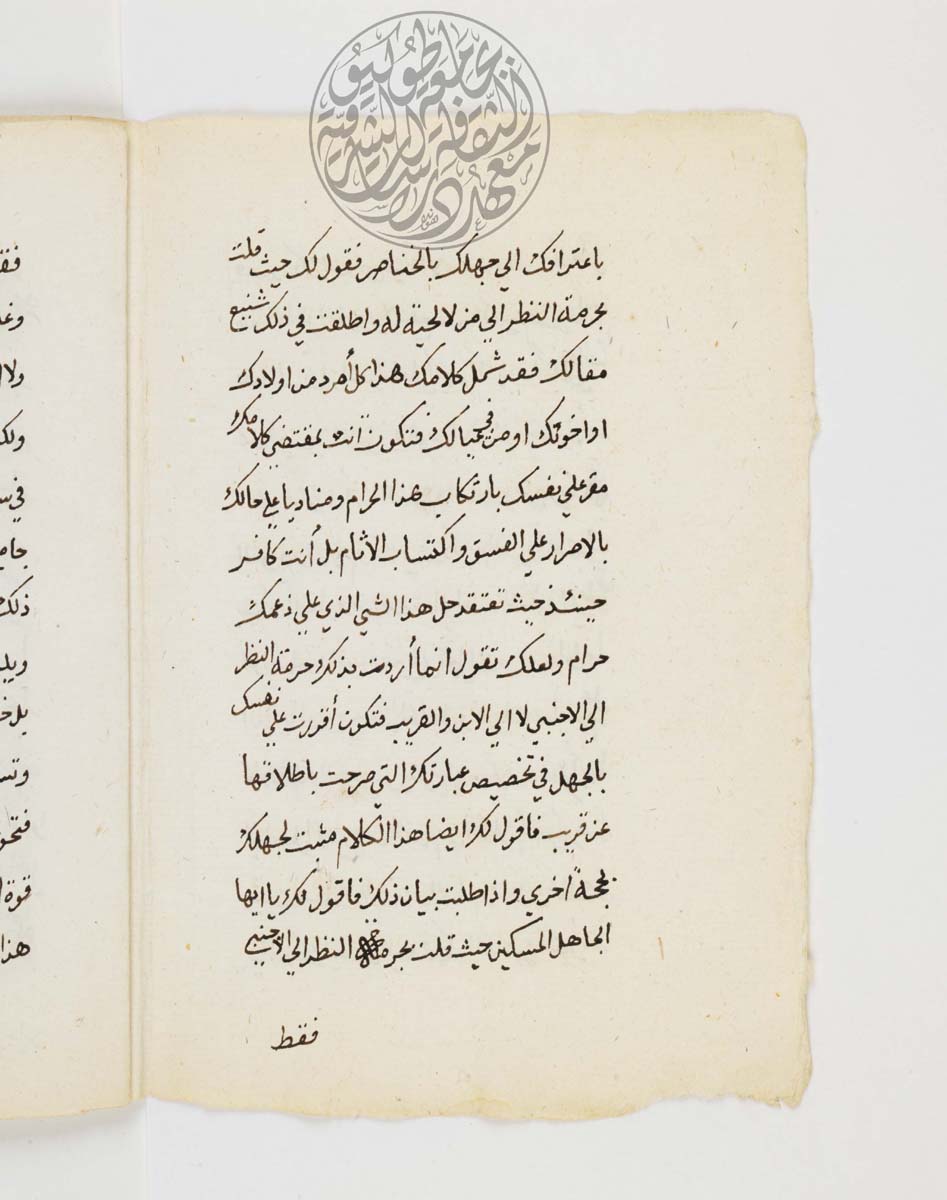 باعترافك الي جهلك بالخناصر فقول لك حيث قلت
بحرمة النظر الي من لا لحية له واطلقت في ذلك شنيع
مقالك فقد شمل كلامك هذا كل أمرد من اولادك
او اخوتك او من في عيالك فتكون انت بمقتضي كلامك
مقر علي نفسك بارتكاب هذا الحرام ومناديا علي حالك
بالاصرار علي الفسق واكتساب الاثام بل أنت كافر
حينئذ حيث تعتقد حل هذا الشي الذي علي زعمك
حرام ولعلك تقول انما أردت بذلك حرمة النظر
الي الاجنبي لا الي الابن والقريب فتكون أقررت علي نفسك
بالجهل في تخصيص عبارتك التي صرحت باطلاقها
عن قريب فاقول لك ايضا هذا الكلام مثبت لجهلك
بحجة اخري واذا طلبت بيان ذلك فاقول لك يا ايها
الجاهل المسكين حيث قلت بحرمة النظر الي الاجنبي
فقط
معهد دراسات الثقافة الشرقية
بجامعة طوكيو